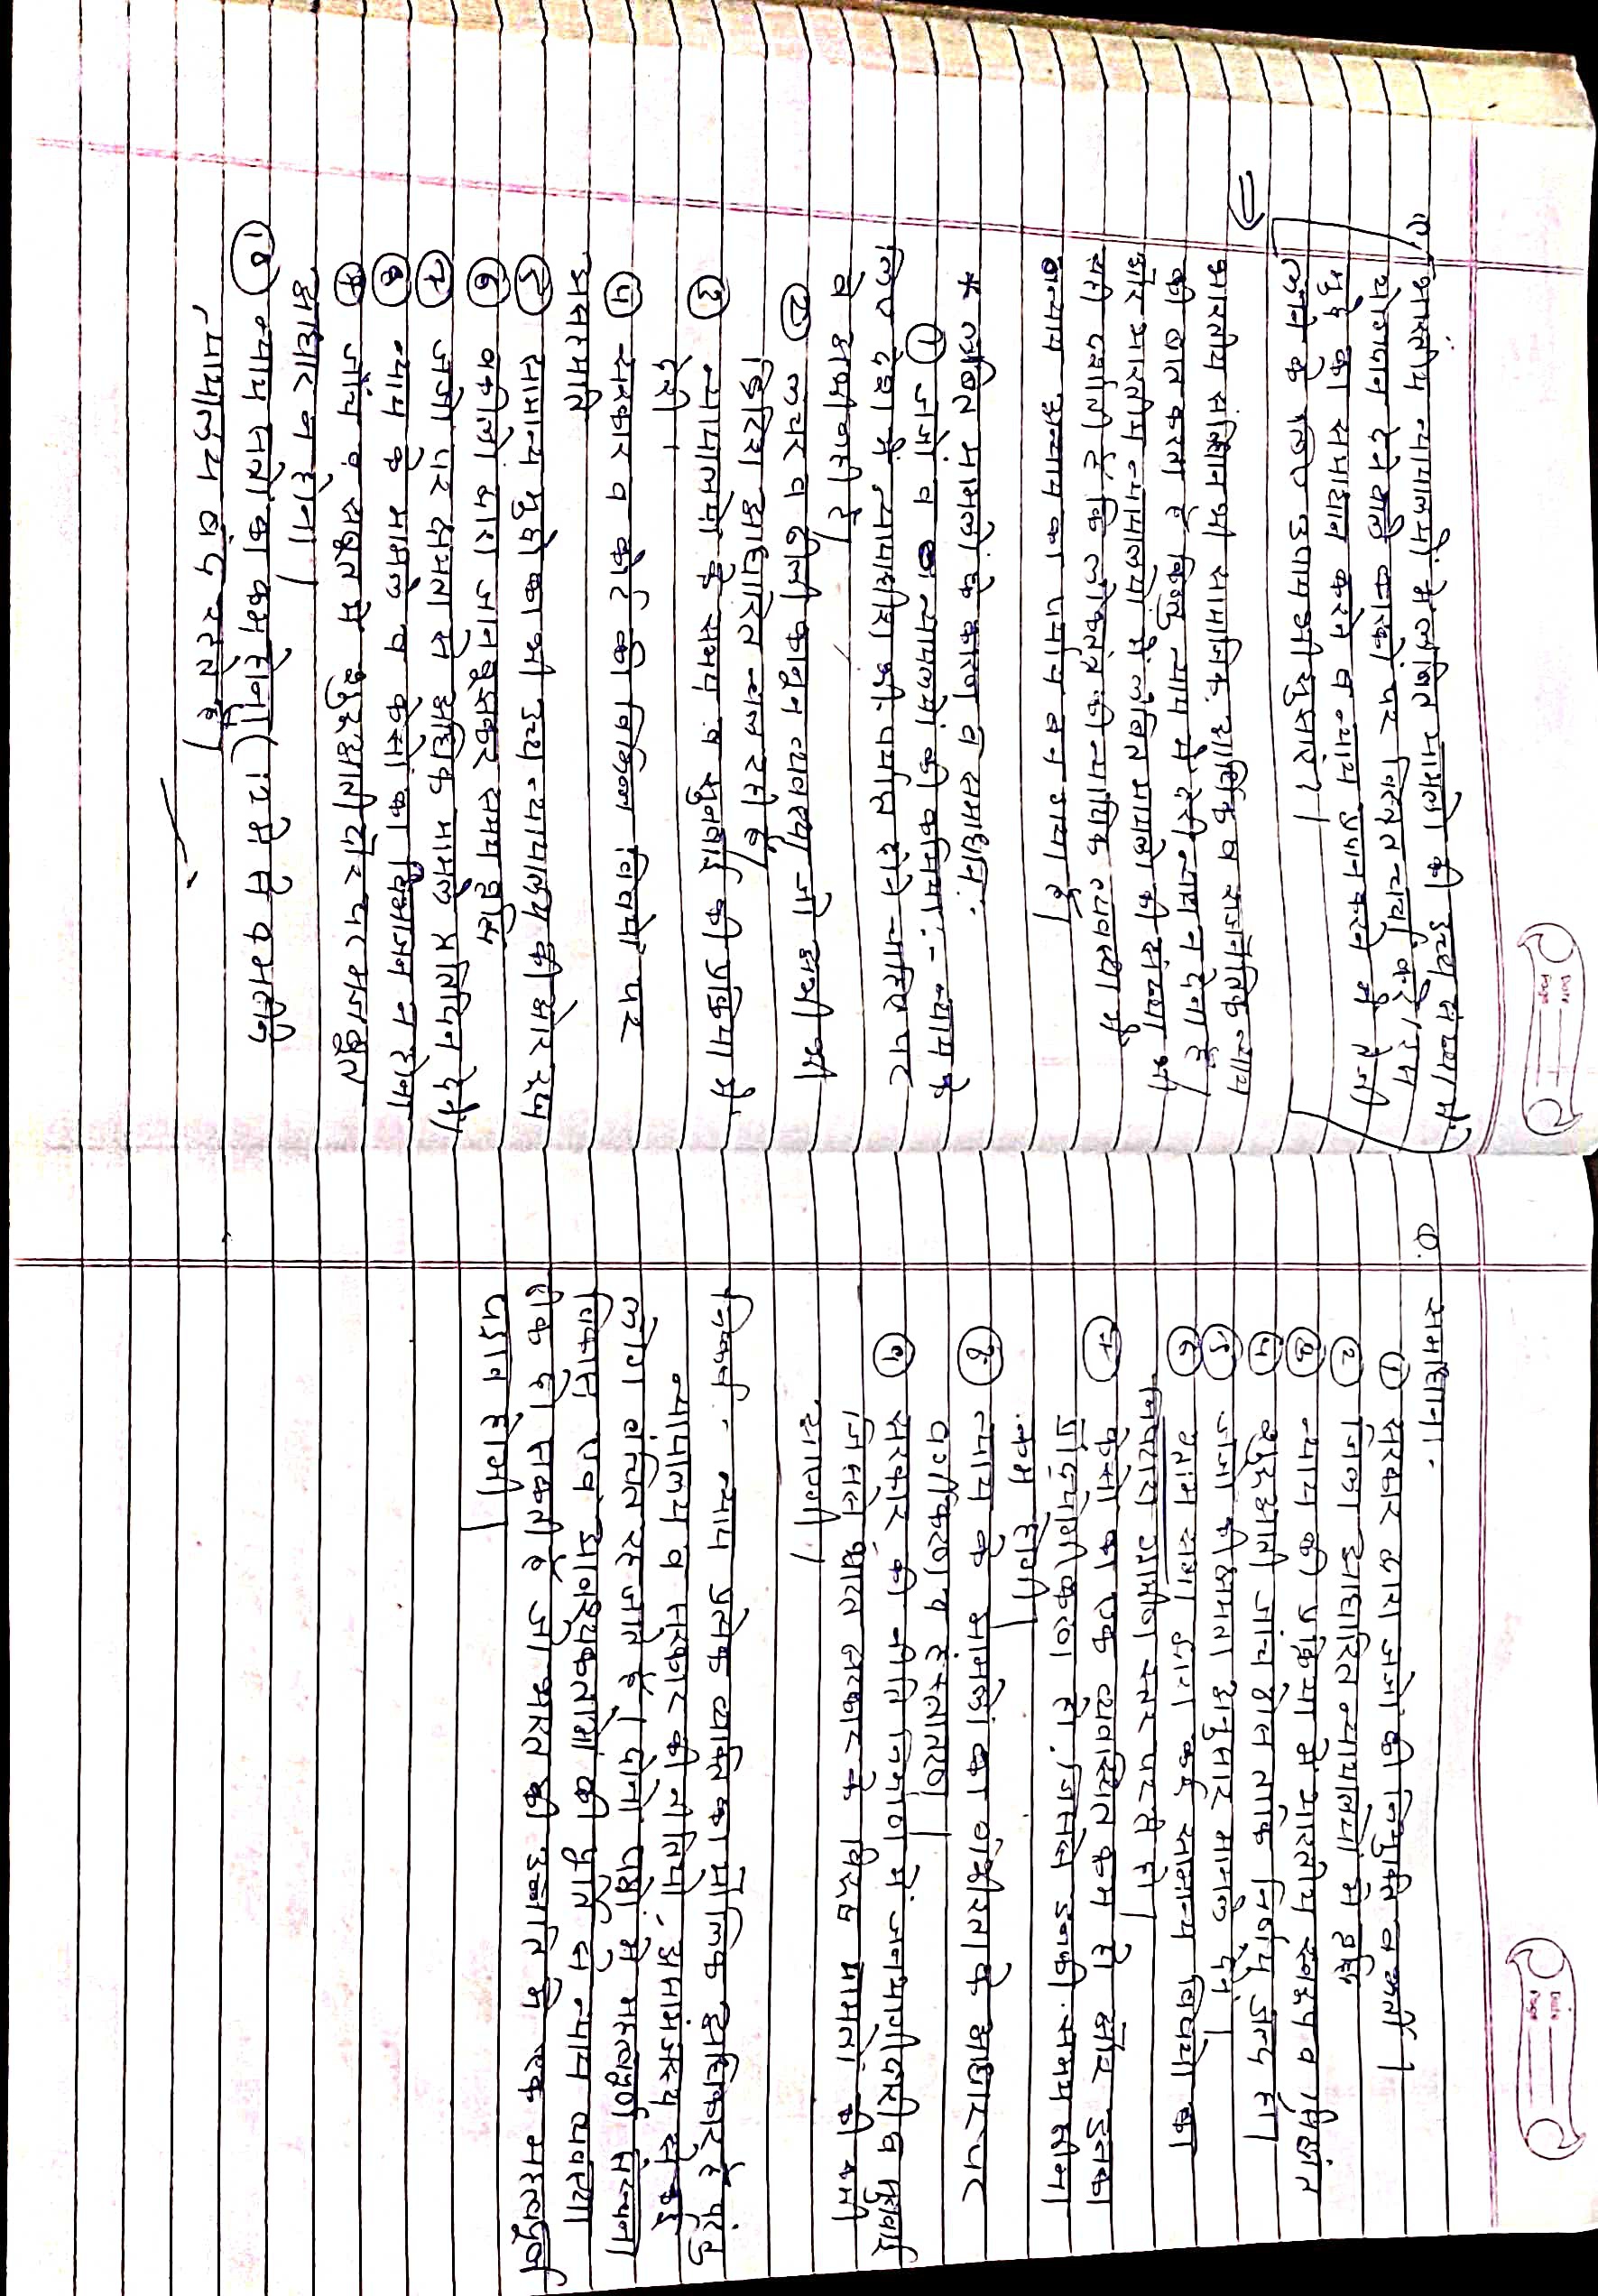 Date
Page
Q. भारतीय न्यायालयों में लंबित मामलों की उच्च संख्या में
योगदान देने वाले कारकों पर विस्तृत चर्चा करे। इस
मुद्दे का समाधान करने व न्याय प्रदान करने में तेजी
लाने के लिए उपाय भी सुझाए।
⇒ भारतीय संविधान भी सामाजिक, आर्थिक व राजनीतिक न्याय
की बात करता है किन्तु न्याय में देरी न्याय न देना है
और भारतीय न्यायालयों में लंबित मामलों की संख्या भी
यही दर्शाती है कि लोकतंत्र की न्यायिक व्यवस्था में
न्याय अन्याय का पर्याय बन गया है।
* लंबित मामलों के कारण व समाधान:-
① जजों व न्यायलयों की कमियां:- न्याय के
लिए देश में न्यायाधीश भी पर्याप्त होने चाहिए पर
वे अभी नही है।
② लचर व ढीली कानून व्यवस्था जो अभी भी
ब्रिटिश आधारित चल रही है।
③ न्यायालयों के समय व सुनवाई की प्रक्रिया में
देरी।
④ सरकार व कोर्ट की विभिन्न विषयों पर
असहमति
⑤ सामान्य मुद्दो का भी उच्च न्यायालय की ओर रुख
⑥ वकीलो द्वारा जानबूझकर समय वृद्धि
⑦ जजो पर क्षमता से अधिक मामले प्रतिदिन देने
⑧ न्याय के मामले व केसों का विभाजन न होना
⑨ जाँच व सबूत में शुरूआती तौर पर मजबूत
आधार न होना।
⑩ न्याय सत्रो का कम होना (12 में से 4 महीने
न्यायालय बंद रहते है)
Date
Page
Q. समाधान:-
① सरकार द्वारा जजों की नियुक्ति व भर्ती।
② जिला आधारित न्यायालयों में वृद्धि
③ न्याय की प्रक्रिया में भारतीय स्वरूप व सिद्धांत
④ शुरूआती जांच ठोस ताकि निर्णय जल्द हो।
⑤ जजो की क्षमता अनुसार मामले देने।
⑥ ग्राम सभा द्वारा कई सामान्य विषयो का
निपटारा ग्रामीण स्तर पर ही हो।
⑦ केसो का एक व्यवस्थित क्रम हो और इनका
प्रौद्योगिकीकरण हो, जिससे इनकी समय सीमा
कम होगी।
⑧ न्याय के मामलों का गंभीरता के आधार पर
वर्गीकरण व हस्तांतरण।
⑨ सरकार की नीति निर्माण में जनभागीदारी व सुनवाई
जिससे भारत सरकार के विरूद्ध मामलों की कमी
आएगी।
निष्कर्ष - न्याय प्रत्येक व्यक्ति का मौलिक अधिकार है परंतु
न्यायालय व सरकार की नीतियो, असामंजस्य से कई
लोग वंचित रह जाते है। दोनो पक्षो में महत्वपूर्ण संरचना
विकास एवं आवश्यकताओं की पूर्ति से न्याय व्यवस्था
ठीक हो सकती है जो भारत की उन्नति में एक महत्वपूर्ण
पड़ाव होगी।